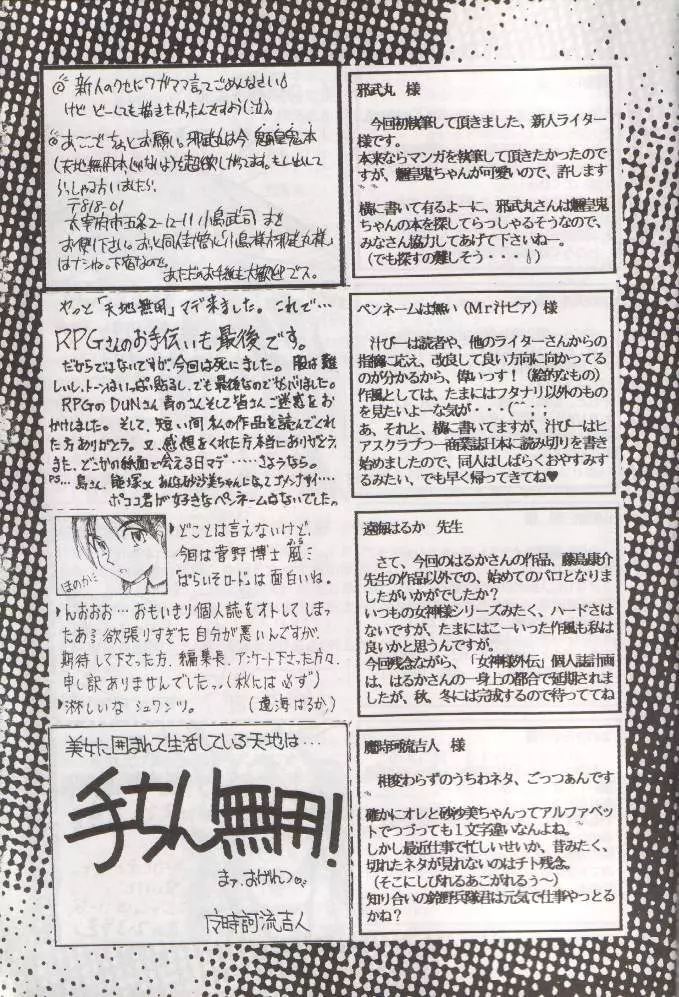 ◎新人のクセにワガママ言ってごめんなさい
けど どーしても描きたかったんですよう(泣)。
◎あとここでちょっとお願い。邪武丸は今 魎皇鬼本
(天地無用本じゃないよ)を超欲しがってます。もし出して
らっしゃる方いましたら、
〒818-01
太宰府市五条2-12-11 小島武司 まで
お便り下さい。あと同人街宮に「小島様方邪武丸様」
はナシね。下宿なので。
あただのお手紙も大歓迎でス。
邪武丸 様
今回初執筆して頂きました、新人ライター
様です。
本来ならマンガを執筆して頂きたかったので
すが、魎皇鬼ちゃんが可愛いので、許します
横に書いて有るよーに、邪武丸さんは魎皇鬼
ちゃんの本を探してらっしゃるそうなので、
みなさん協力してあげて下さいねー。
(でも探すの難しそう・・・;)
やっと「天地無用」マデ来ました。これで…
RPGさんのお手伝いも最後です。
だからではないですが、今回は死にました。服は難
しいし、トーンはいっぱい貼るし、でも最後なのでがんばりました。
RPGのDUNさん 責のさんそして皆さんご迷惑をお
かけしました。そして、短い間 私の作品を読んでくれ
た方ありがとう。又、感想をくれた方本当にありがとう。
また、どこかの紙面で会える日マデ……さようなら。
P.S… 島さん、飯塚さん みんな砂沙美ちゃんになってゴメンナサイ…
ポココ君が好きなペンネームはないでした。
ペンネームは無い(Mr汁ビア)様
汁びーは読者や、他のライターさんからの
指摘に応え、改良して良い方向に向かってる
のが分かるから、偉いっす!(絵的なもの)
作風としては、たまにはフタナリ以外のもの
を見たいよーな気が・・・(^^;;
あ、それと、横に書いてますが、汁びーはヒ
アスクラブつー商業誌日本に読み切りを書き
始めましたので、同人はしばらくおやすみす
るみたい、でも早く帰ってきてね♥
ほのか
どことは言えないけど、
今回は菅野博士 風ミ
「ぱらいそロード」は面白いね。
んおおお…おもいきり個人誌をオトしてしまっ
たあぅ 欲張りすぎた自分が悪いんですが、
期待して下さった方、編集長、アンケート下さった方々、
申し訳ありませんでしたっ。(秋には必ず)
淋しいな シュワンツ。 (遠海はるか)
遠海はるか 先生
さて、今回のはるかさんの作品、藤島康介
先生の作品以外での、始めてのパロとなりま
したがいかがでしたか?
いつもの女神様シリーズみたく、ハードさは
ないですが、たまにはこーいった作風も私は
良いかと思うんですが。
今回残念ながら、「女神様外伝」個人誌計画
は、はるかさんの一身上の都合で延期されま
したが、秋、冬には完成するので待っててね
美女に囲まれて生活している天地は…
手ちん無用!
まァ、おげんつ
魔時訶流吉人
魔時珂流吉人 様
相変わらずのうちわネタ、ごっつぁんです
確かにオレと砂沙美ちゃんってアルファベッ
トでつづっても1文字違いなんよね。
しかし最近仕事で忙しいせいか、昔みたく、
切れたネタが見れないのはチト残念。
(そこにしびれるあこがれるぅ～)
知り合いの鈴野兵隊君は元気で仕事やっとる
かね?